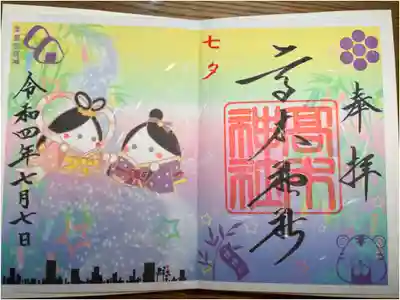 奉拝
高木神社
高木
神社
七夕
令和四年七月七日